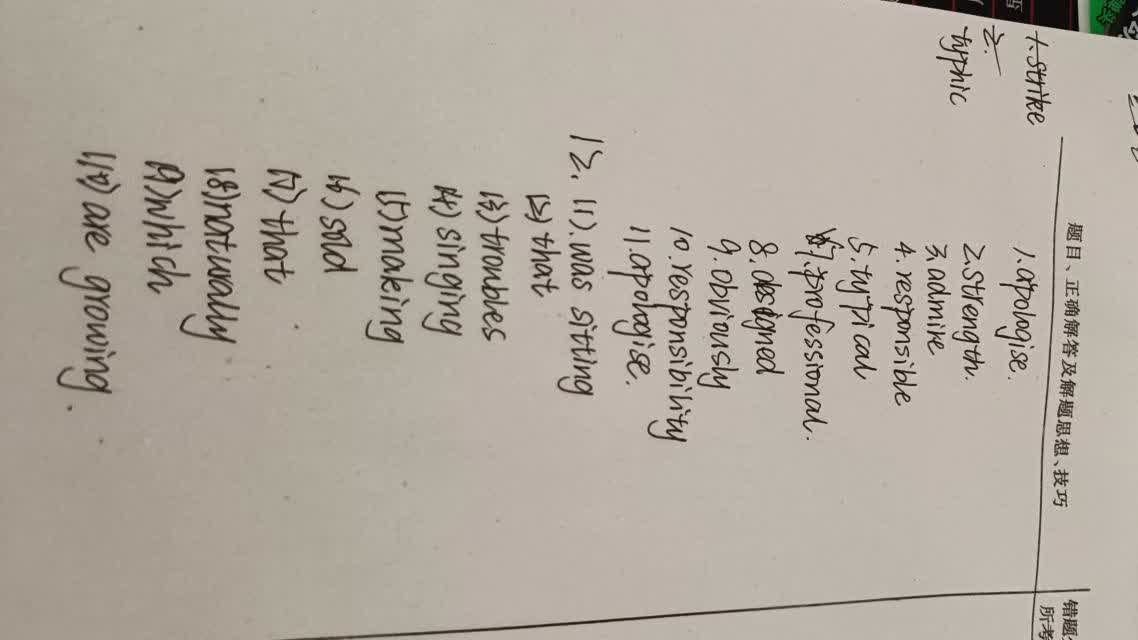 题目、正确解答及解题思想、技巧
错题
所考
1.strike
2.
typhic
1.apologise.
2.strength.
3.admire
4.responsible
5.typical
7.professional.
8.designed
9.obviously
10.responsibility
11.apologise.
12. (1).was sitting
(2) that
(3) troubles
(4) singing
(5) making
(6) sad
(7) that
(8) naturally
(9) which
(10) are growing.